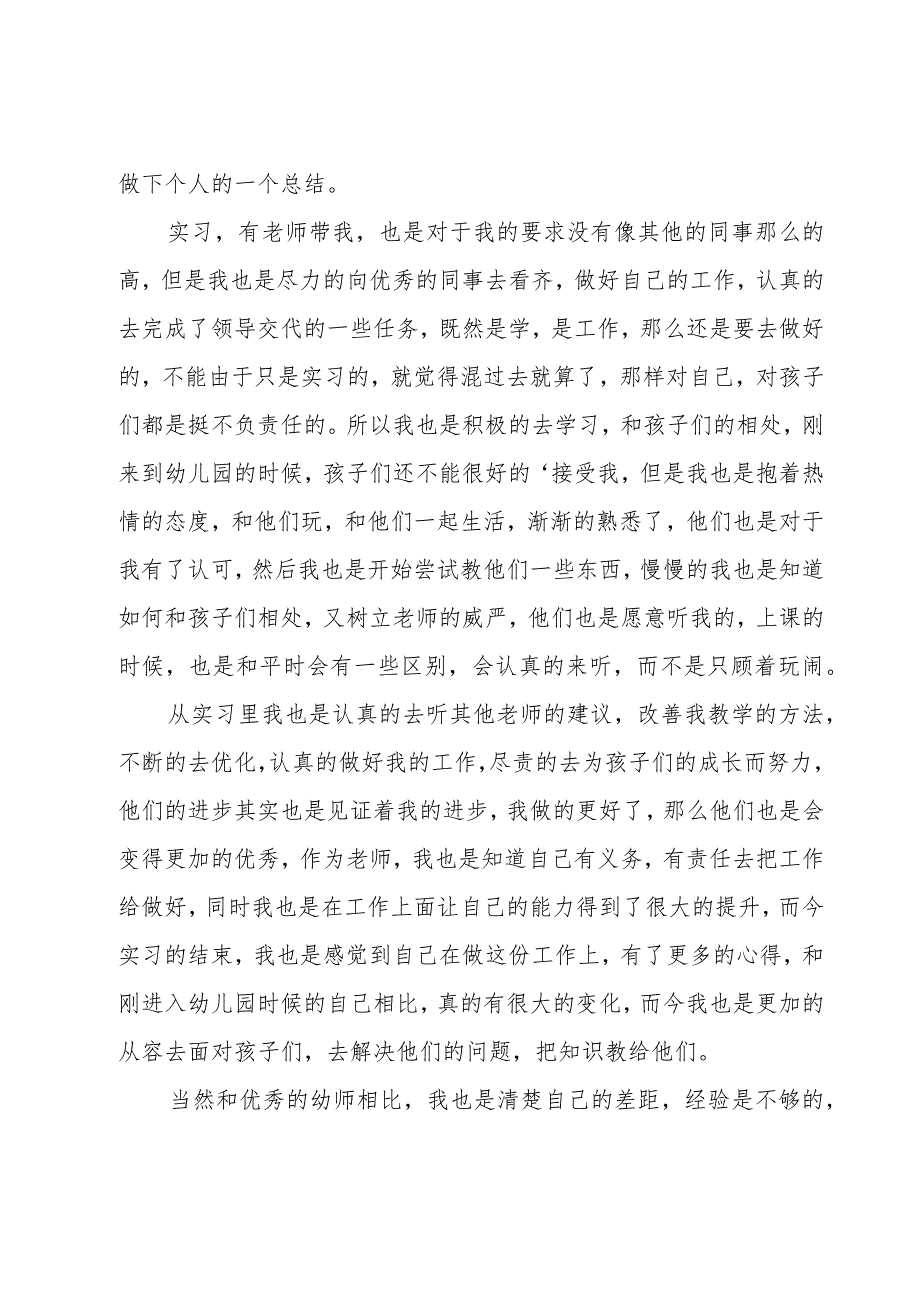 做下个人的一个总结。
实习，有老师带我，也是对于我的要求没有像其他的同事那么的
高，但是我也是尽力的向优秀的同事去看齐，做好自己的工作，认真的
去完成了领导交代的一些任务，既然是学，是工作，那么还是要去做好
的，不能由于只是实习的，就觉得混过去就算了，那样对自己，对孩子
们都是挺不负责任的。所以我也是积极的去学习，和孩子们的相处，刚
来到幼儿园的时候，孩子们还不能很好的‘接受我，但是我也是抱着热
情的态度，和他们玩，和他们一起生活，渐渐的熟悉了，他们也是对于
我有了认可，然后我也是开始尝试教他们一些东西，慢慢的我也是知道
如何和孩子们相处，又树立老师的威严，他们也是愿意听我的，上课的
时候，也是和平时会有一些区别，会认真的来听，而不是只顾着玩闹。
从实习里我也是认真的去听其他老师的建议，改善我教学的方法，
不断的去优化，认真的做好我的工作，尽责的去为孩子们的成长而努力，
他们的进步其实也是见证着我的进步，我做的更好了，那么他们也是会
变得更加的优秀，作为老师，我也是知道自己有义务，有责任去把工作
给做好，同时我也是在工作上面让自己的能力得到了很大的提升，而今
实习的结束，我也是感觉到自己在做这份工作上，有了更多的心得，和
刚进入幼儿园时候的自己相比，真的有很大的变化，而今我也是更加的
从容去面对孩子们，去解决他们的问题，把知识教给他们。
当然和优秀的幼师相比，我也是清楚自己的差距，经验是不够的，